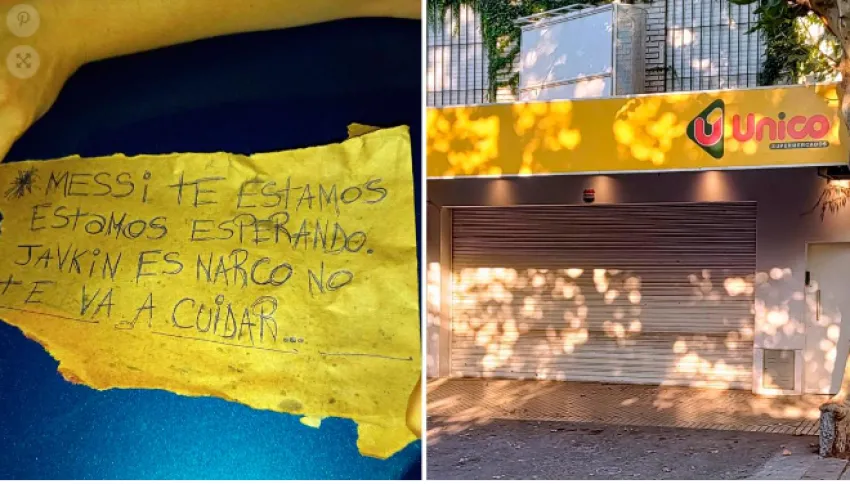 * MESSi TE ESTAMOS
ESTAMOS ESPERANDO.
JAVKIN ES NARCO NO
TE VA A CUIDAR...
U Unico
SUPERMERCADOS